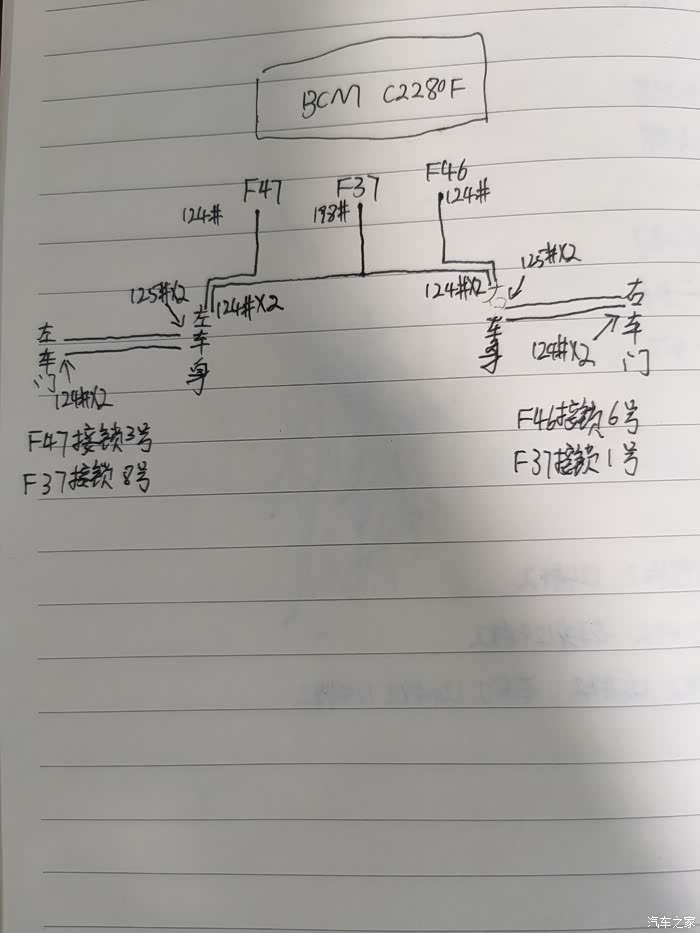 BCM C2280F
F47
F37
F46
124#
198#
124#
125#X2
124#X2
124#X2
125#X2
左车门
左车身
右车身
右车门
124#X2
124#X2
F47接锁3号
F37接锁8号
F46接锁6号
F37接锁1号
汽车之家